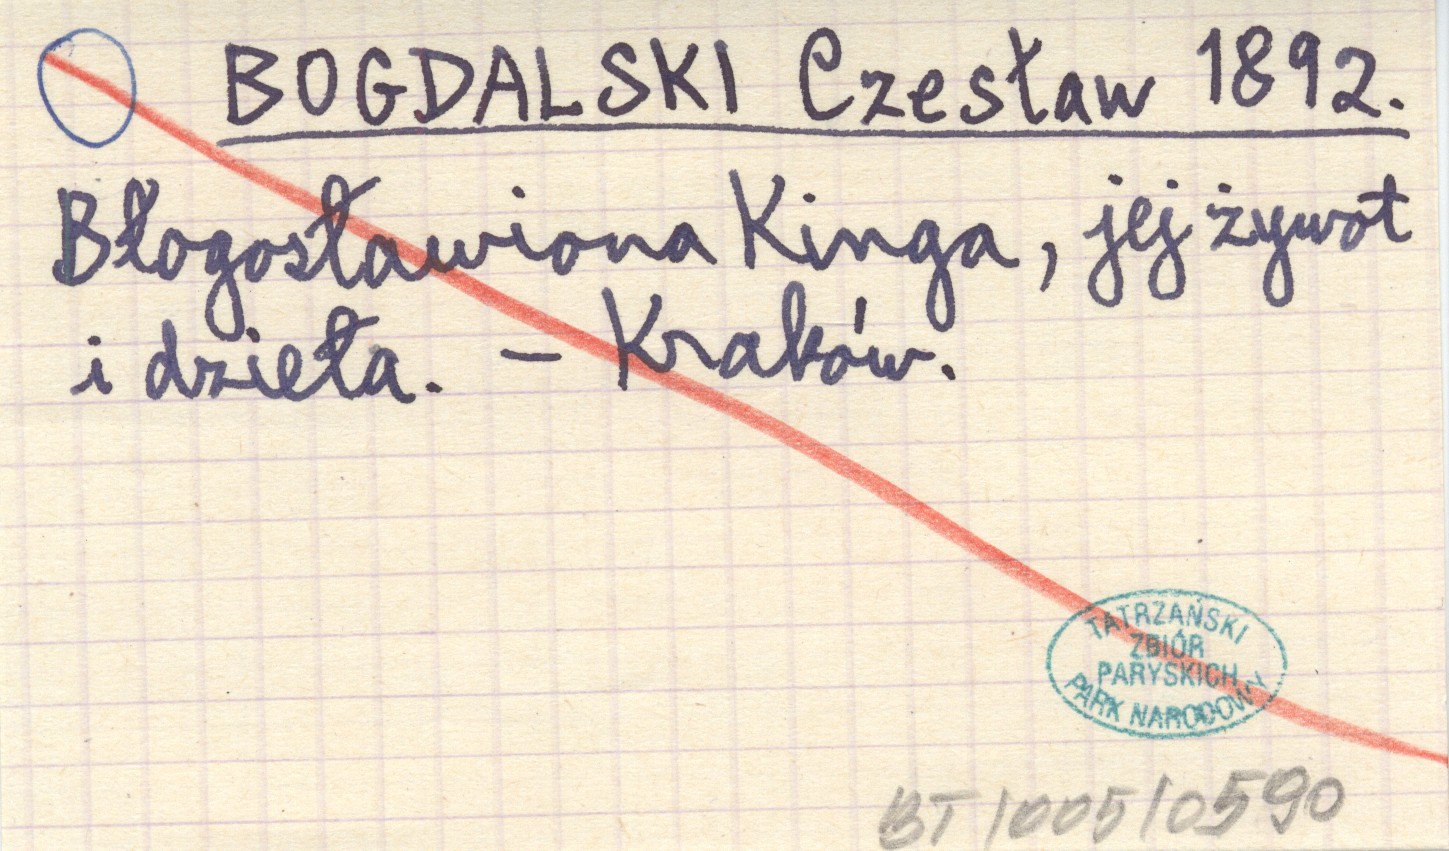 BOGDALSKI Czesław 1892.
Błogosławiona Kinga, jej żywot
i dzieła. – Kraków.
TATRZAŃSKI
ZBIÓR
PARYSKICH
PARK NARODOWY
BT/005/0590